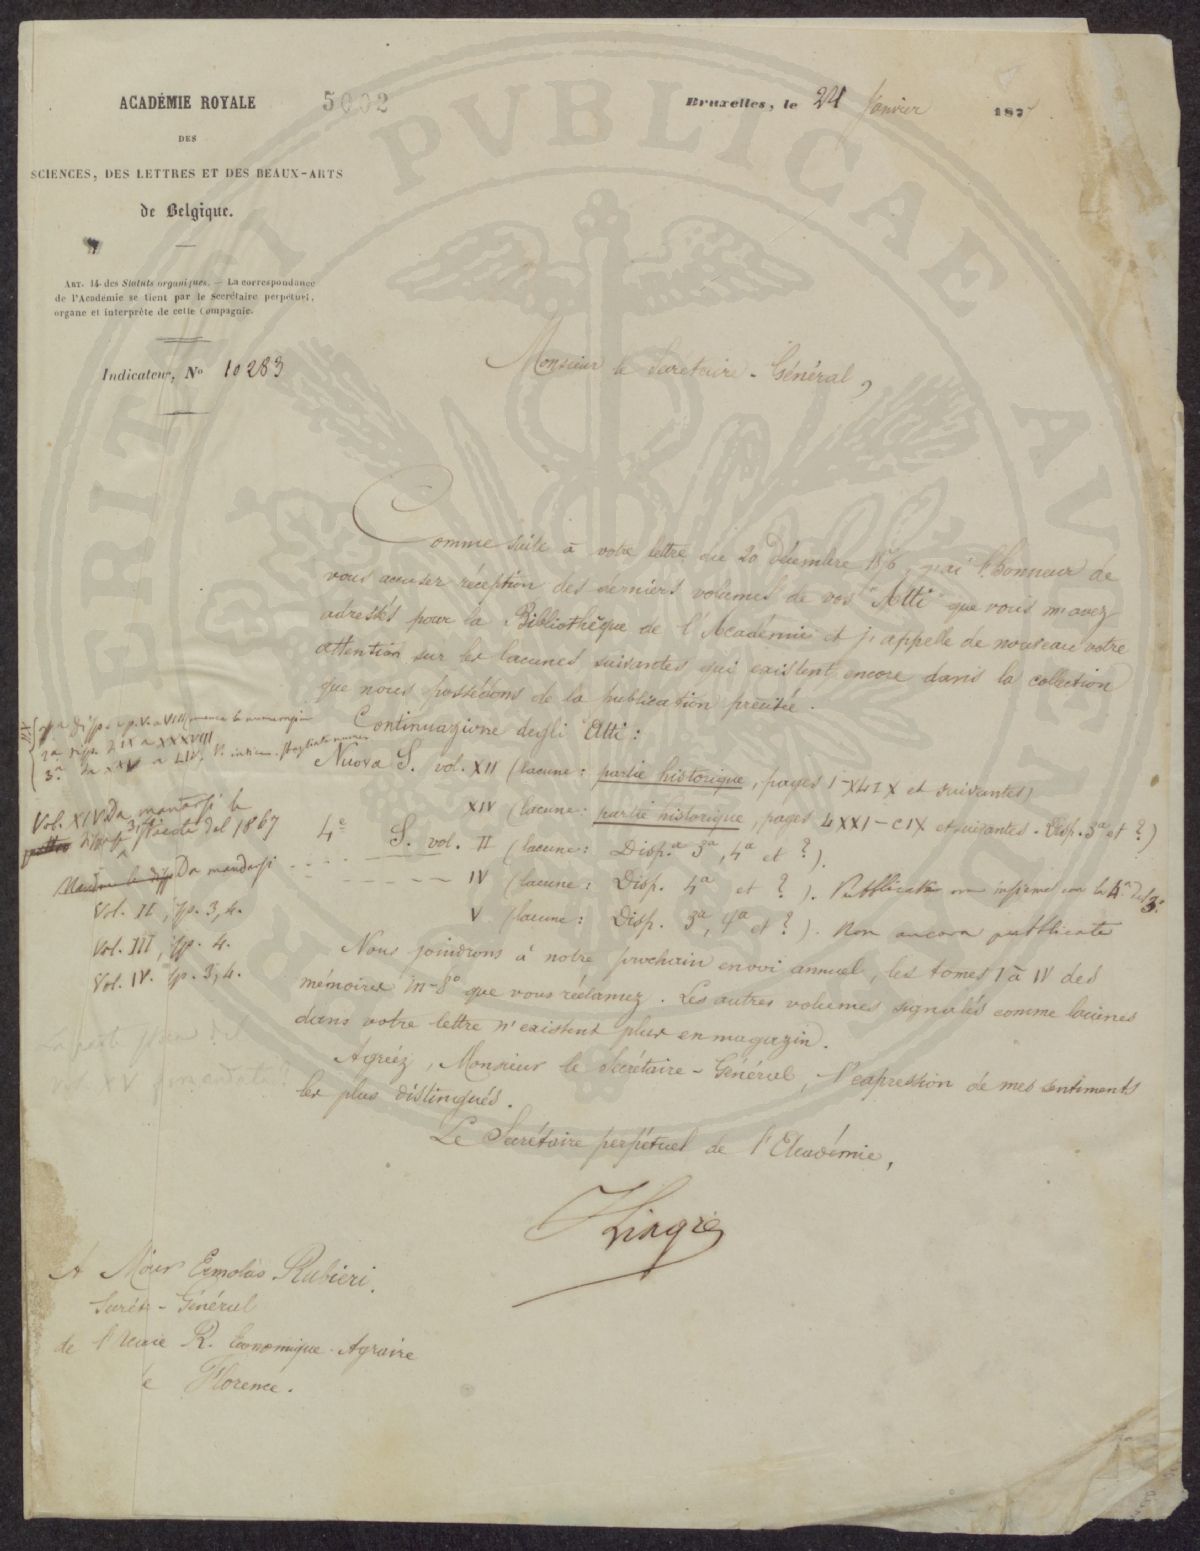 ACADÉMIE ROYALE
DES
SCIENCES, DES LETTRES ET DES BEAUX-ARTS
de Belgique.
5002
Bruxelles, le 24 Janvier 187
ART. 14 des Statuts organiques. — La correspondance
de l'Académie se tient par le Secrétaire perpétuel,
organe et interprète de cette Compagnie.
Indicateur, No 10283
Monsieur le Secretaire-Général,
Comme suite à votre lettre du 20 Décembre 1876, j'ai l'honneur de
vous accuser réception des derniers volumes de vos "Atti" que vous m'avez
adressés pour la Bibliothèque de l'Académie et j'appelle de nouveau votre
attention sur les lacunes suivantes qui existent encore dans la collection
que nous possédons de la publication précitée.
Continuazione degli Atti:
Nuova S. vol. XII (lacune: partie historique, pages I-XLIX et suivantes)
XIV (lacune: partie historique, pages LXXI-CIX et suivantes. Disp. 3a et ?)
4e S. vol. II (lacune: Disp.a 3a, 4a et ?).
IV (lacune: Disp. 4a et ?).
V (lacune: Disp. 3a, 4a et ?). Non ancora pubblicate
Nous joindrons à notre prochain envoi annuel, les tomes I à IV des
mémoires in-8o que vous réclamez. Les autres volumes signalés comme lacunes
dans votre lettre n'existent plus en magazin.
Agréez, Monsieur le Secrétaire-Général, l'expression de mes sentiments
les plus distingués.
Le Secrétaire perpétuel de l'Académie,
XII
Vol. XIV Da mandarsi la
del 1867
Da mandarsi
Vol. II, sp. 3, 4.
Vol. III, sp. 4.
Vol. IV. sp. 3, 4.
A Mour Ermolao Rubieri,
Secrét-Général
de l'Acad. R. Economique-Agraire
à Florence.
PVBLICAE